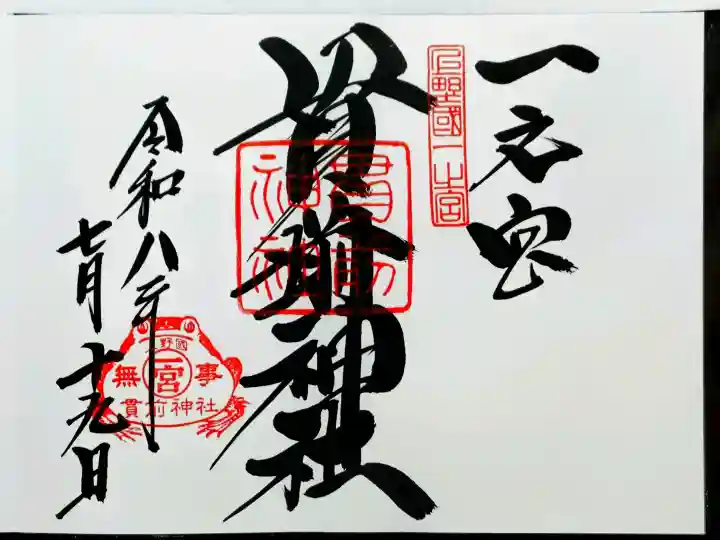 一之宮
上野國一之宮
貫前神社
貫前神社
令和八年
七月十九日
上野國
一宮
無事
貫前神社